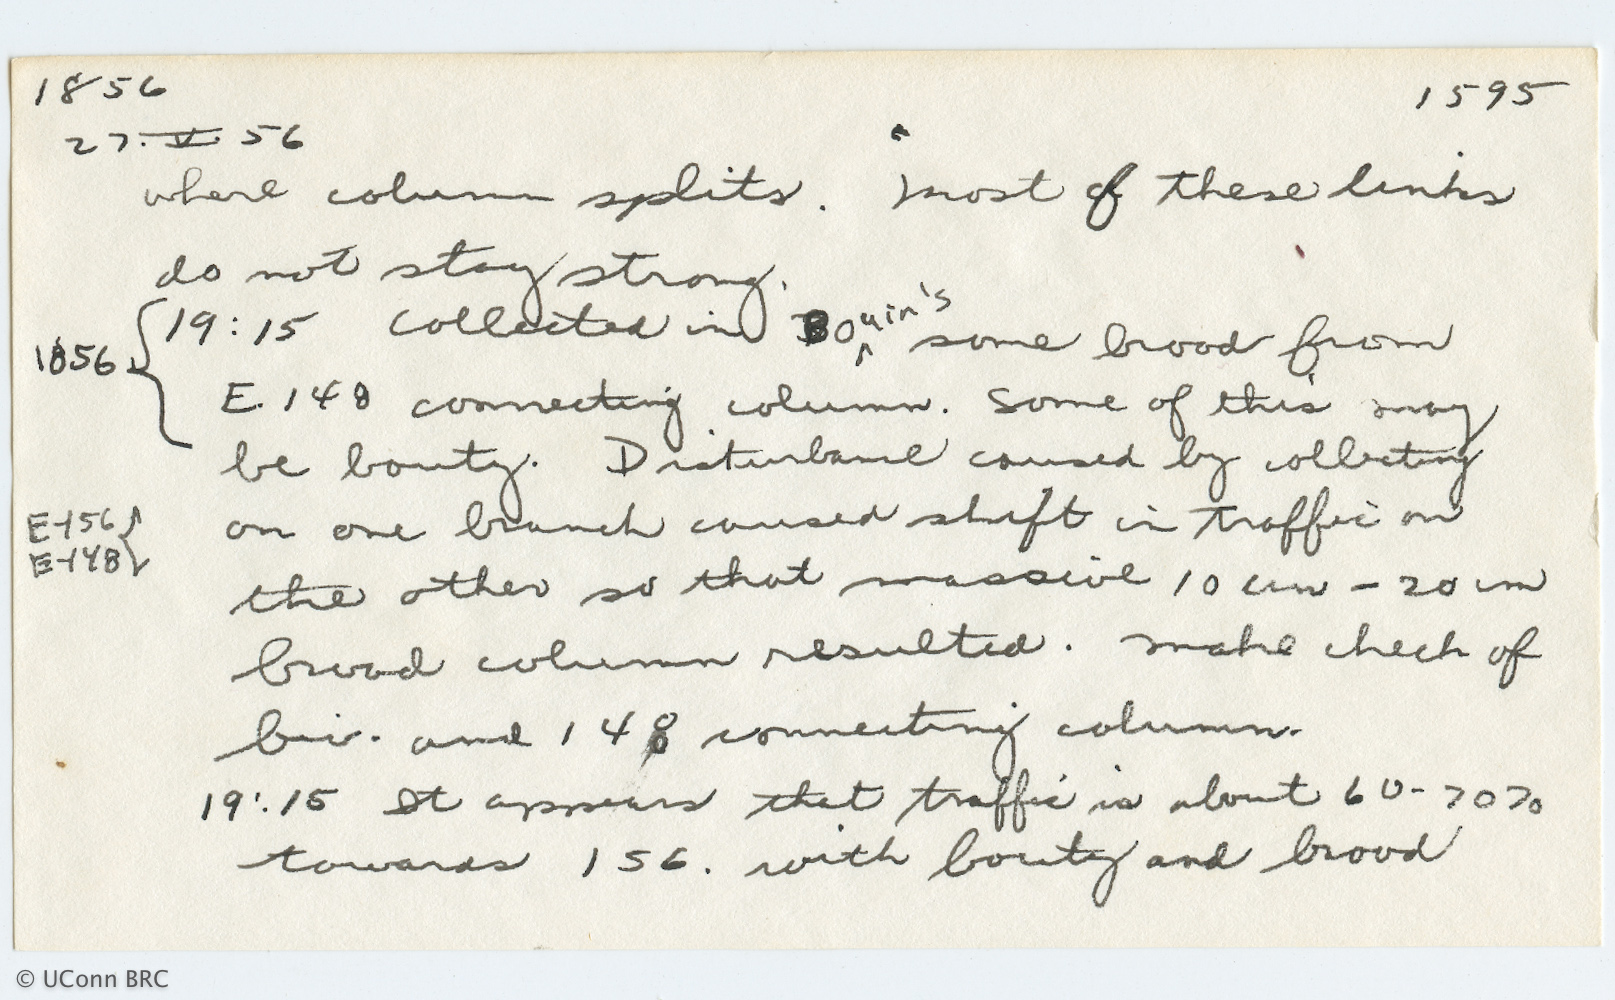 1856 1595
27. V. 56
where column splits. Most of these links
do not stay strong.
1856 { 19:15 Collected in Bouin's some brood from
E.148 connecting column. Some of this may
be bouty. Disturbance caused by collecting
E-156 E-148 on one branch caused shift in traffic on
the other so that massive 10 cm - 20 cm
broad column resulted. Make check of
biv. and 148 connecting column.
19:15 It appears that traffic is about 60-70%
towards 156. with bouty and brood
© UConn BRC